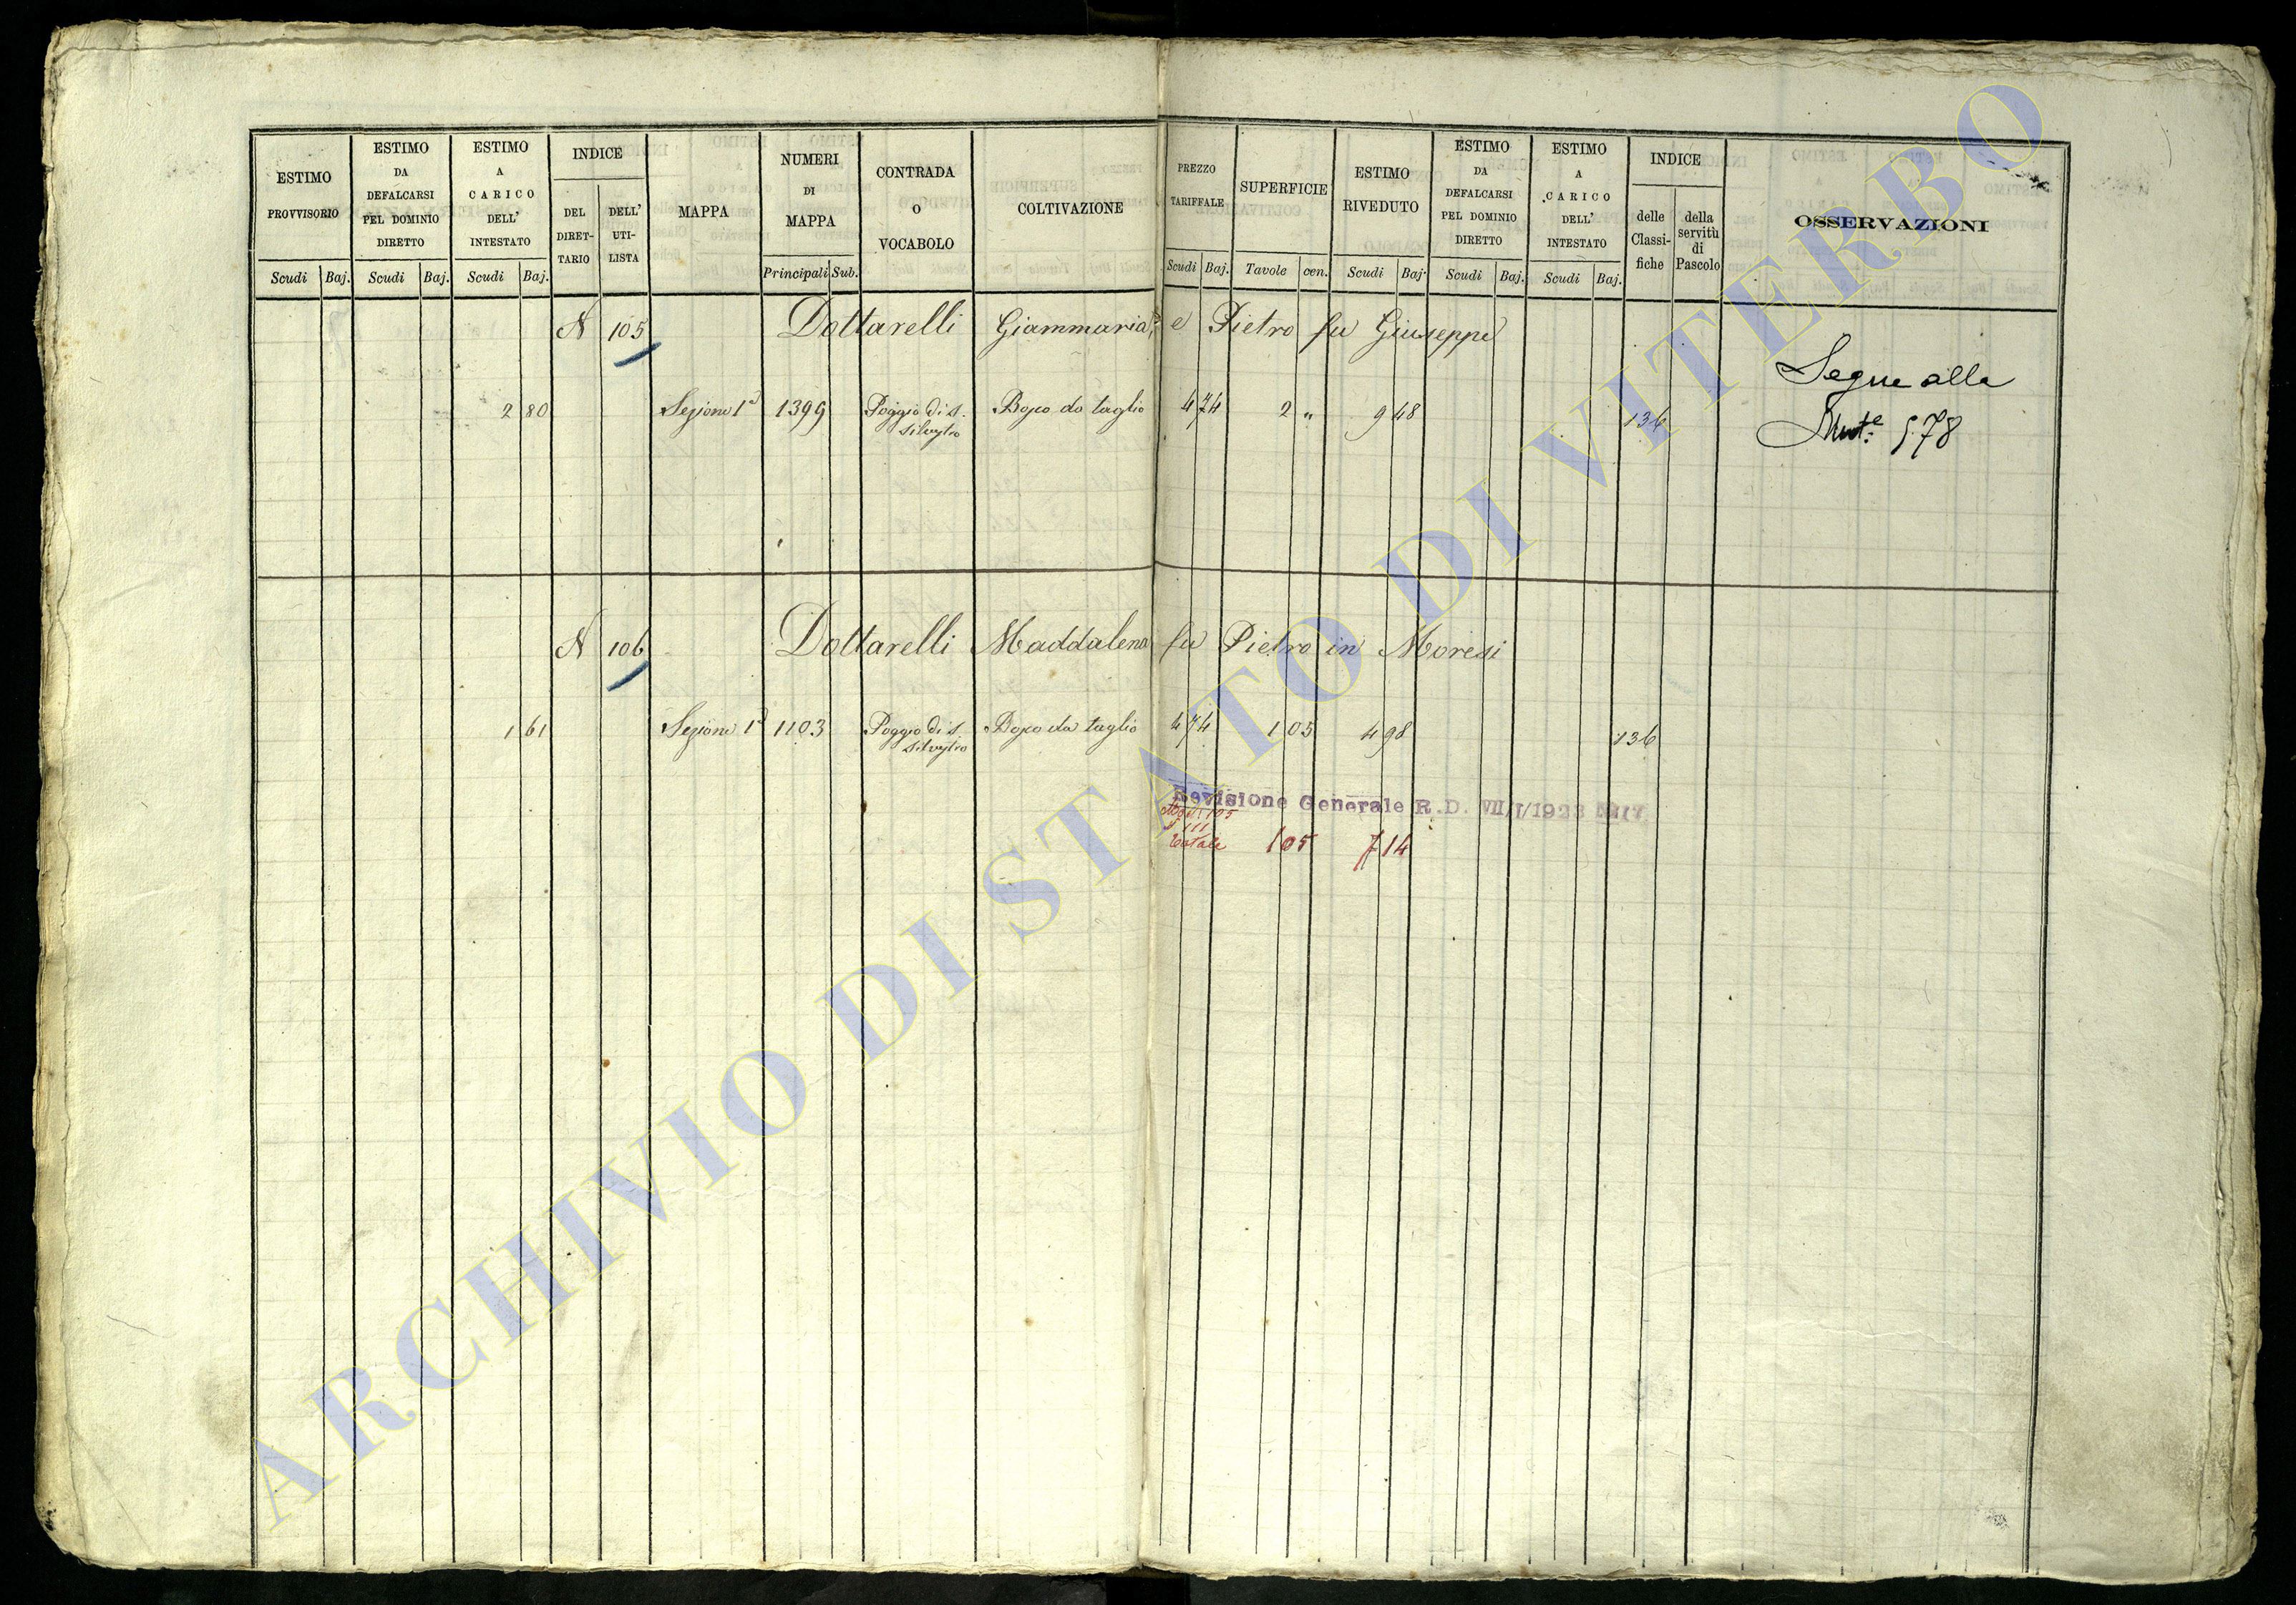 ESTIMO PROVVISORIO
Scudi Baj.
ESTIMO DA DEFALCARSI PEL DOMINIO DIRETTO
Scudi Baj.
ESTIMO A CARICO DELL' INTESTATO
Scudi Baj.
INDICE
DEL DIRET- TARIO
DELL' UTI- LISTA
MAPPA
NUMERI DI MAPPA
Principali Sub.
CONTRADA O VOCABOLO
COLTIVAZIONE
PREZZO TARIFFALE
Scudi Baj.
SUPERFICIE
Tavole cen.
ESTIMO RIVEDUTO
Scudi Baj
ESTIMO DA DEFALCARSI PEL DOMINIO DIRETTO
Scudi Baj.
ESTIMO A CARICO DELL' INTESTATO
Scudi Baj.
INDICE
delle Classi- fiche
della servitù di Pascolo
OSSERVAZIONI
N 105 Dottarelli Giammaria e Pietro fu Giuseppe
Segue alla
2 80 Sezione 1ª 1399 Poggio di S. Bosco da taglio 4 74 2 " 9 48 136
Silvestro
578
N 106 Dottarelli Maddalena fu Pietro in Moresi
1 61 Sezione 1ª 1103 Poggio di S. Bosco da taglio 4 74 1 05 4 98 136
Silvestro
Revisione Generale R.D. VII/I/1923 N.17
111
Totale 1 05 7 14
ARCHIVIO DI STATO DI VITERBO